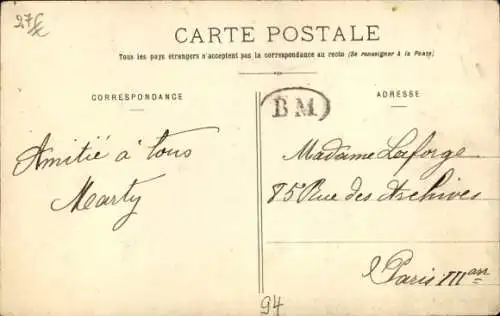 27€
CARTE POSTALE
Tous les pays étrangers n'acceptent pas la correspondance au recto (Se renseigner à la Poste)
CORRESPONDANCE
Amitié à tous
Marty
BM
ADRESSE
Madame Laforge
85 Rue des Archives
Paris III
94